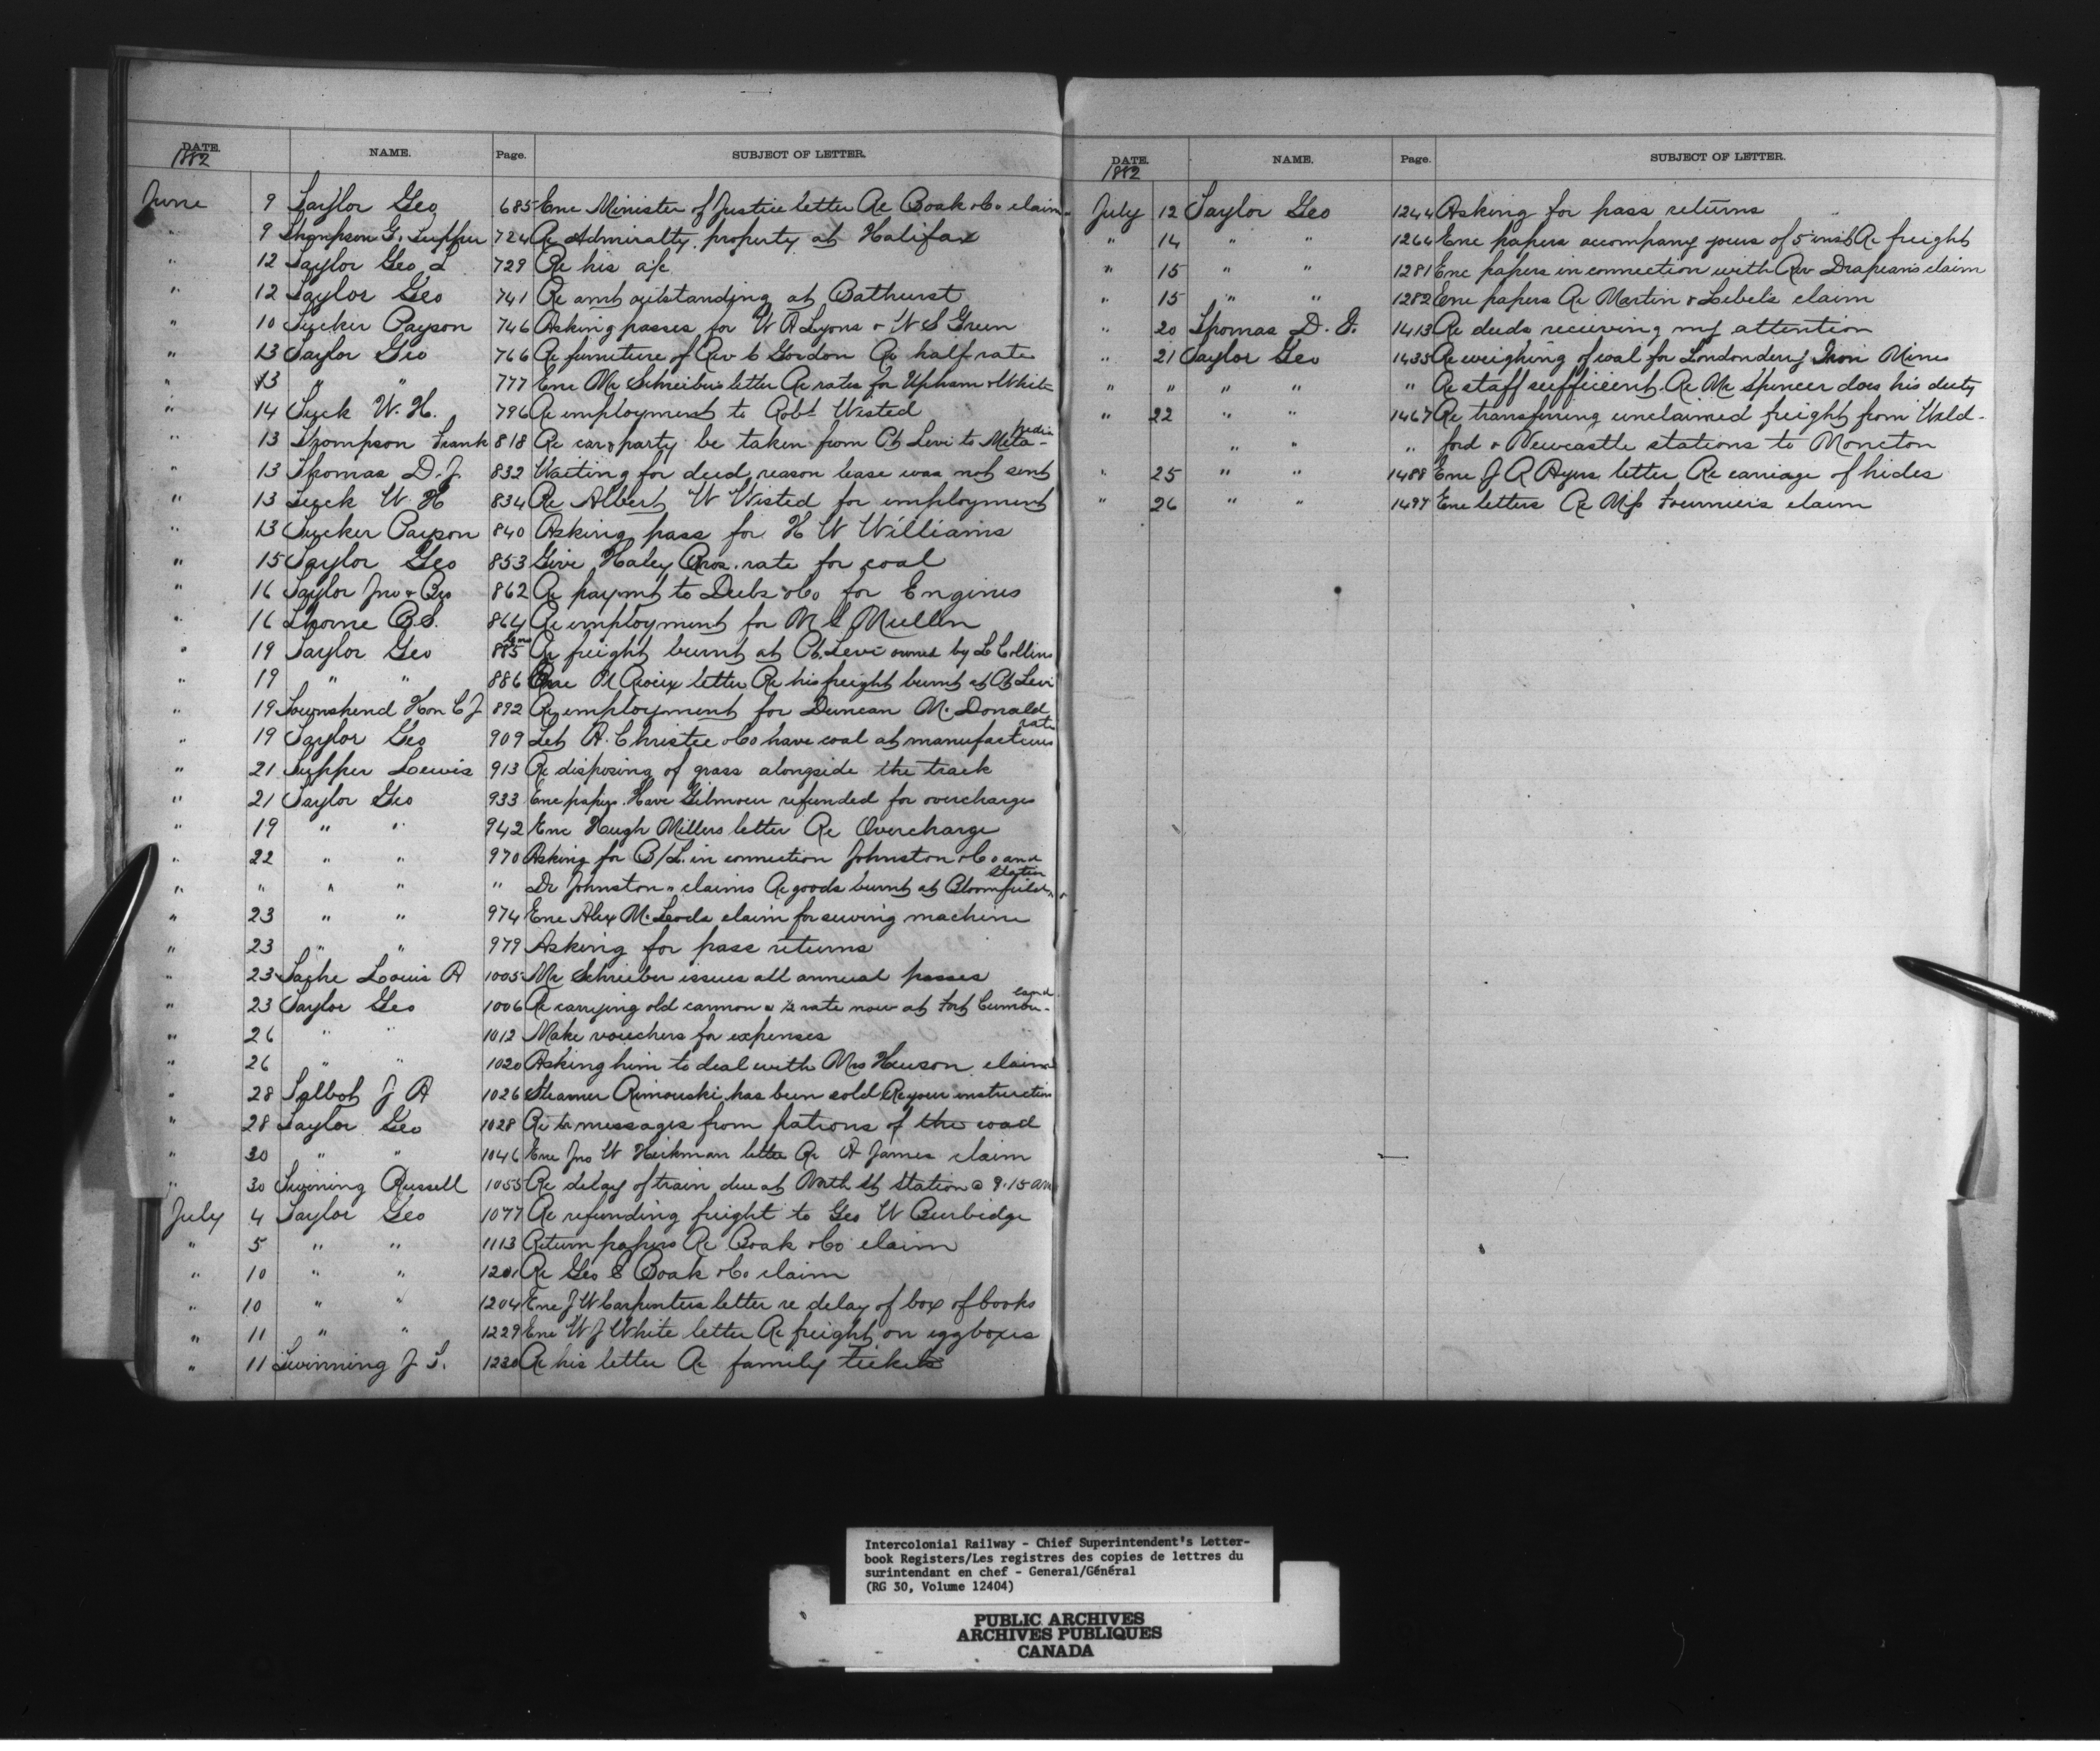 DATE. NAME. Page. SUBJECT OF LETTER.
1882
June 9 Taylor Geo 685 Enc Minister of Justice letter Re Boak & Co claim
" 9 Thompson G. Tupper 724 Re Admiralty property at Halifax
" 12 Taylor Geo L 729 Re his a/c
" 12 Taylor Geo 741 Re amt outstanding at Bathurst
" 10 Tucker Payson 746 Asking passes for W A Lyons & W S Green
" 13 Taylor Geo 766 Re furniture of Rev C Gordon Re half rate
" 13 " " 777 Enc Mr Schreiber's letter Re rates for Upham & White
" 14 Tuck W. H. 796 Re employment to Robt Wisted
" 13 Thompson Frank 818 Re car & party be taken from Pt Levi to Metapedia
" 13 Thomas D. J. 832 Waiting for deed, reason lease was not sent
" 13 Tuck W. H 834 Re Albert W Wisted for employment
" 13 Tucker Payson 840 Asking pass for H W Williams
" 15 Taylor Geo 853 Give Haley Bros. rate for coal
" 16 Taylor Jno & Bro 862 Re paymt to Dubs & Co for Engines
" 16 Thorne 864 Re employment for Mc Mullin
" 19 Taylor Geo 885 Re freight burnt at Pt. Levi owned by L Collins
" 19 " " 886 Enc letter Re his freight burnt at Pt Levi
" 19 Townshend Hon C J 892 Re employment for Duncan McDonald
" 19 Taylor Geo 909 Let A. Christie & Co have coal at manufacturers rate
" 21 Tupper Lewis 913 Re disposing of grass alongside the track
" 21 Taylor Geo 933 Enc papers. Have Gilmour refunded for overcharge
" 19 " " 942 Enc Hugh Millers letter Re Overcharge
" 22 " " 970 Asking for B/L. in connection Johnston & Co and
" " " " " Dr Johnston " claims Re goods burnt at Bloomfield Station
" 23 " " 974 Enc Alex McLeods claim for sewing machine
" 23 " " 979 Asking for pass returns
" 23 Tache Louis A 1005 Mr Schrieber issues all annual passes
" 23 Taylor Geo 1006 Re carrying old cannon @ ½ rate now at Fort Cumberland
" 26 " " 1012 Make vouchers for expenses
" 26 " " 1020 Asking him to deal with Mrs Hewson claim
" 28 Talbot J A 1026 Steamer Rimouski has been sold Re your instructions
" 28 Taylor Geo 1028 Re messages from stations of the road
" 30 " " 1046 Enc Jno W Hickman letter Re A James claim
" 30 Twining Russell 1055 Re delay of train due at North St Station @ 9.15 am
July 4 Taylor Geo 1077 Re refunding freight to Geo W Burbidge
" 5 " " 1113 Return papers Re Boak & Co claim
" 10 " " 1201 Re Geo E Boak & Co claim
" 10 " " 1204 Enc J W Carpenters letter re delay of box of books
" 11 " " 1229 Enc W J White letter Re freight on egg boxes
" 11 Twinning J. T. 1230 Re his letter Re family tickets
DATE. NAME. Page. SUBJECT OF LETTER.
1882
July 12 Taylor Geo 1244 Asking for pass returns
" 14 " " 1264 Enc papers accompany yours of 5th inst Re freight
" 15 " " 1281 Enc papers in connection with Rev Drapeau's claim
" 15 " " 1282 Enc papers Re Martin & Lebel's claim
" 20 Thomas D. J. 1413 Re deeds receiving my attention
" 21 Taylor Geo 1435 Re weighing of coal for Londonderry Iron Mines
" " " " " Re staff sufficient Re Mr Spencer does his duty
" 22 " " 1467 Re transferring unclaimed freight from Weld-
" " " ford & Newcastle stations to Moncton
" 25 " " 1488 Enc J R Ayers letter Re carriage of hides
" 26 " " 1497 Enc letters Re Miss Fournier's claim
Intercolonial Railway - Chief Superintendent's Letter-
book Registers/Les registres des copies de lettres du
surintendant en chef - General/Général
(RG 30, Volume 12404)
PUBLIC ARCHIVES
ARCHIVES PUBLIQUES
CANADA